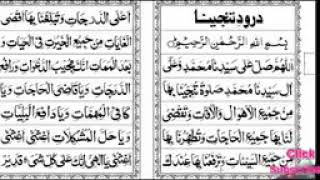 درود تنجینا
بِسْمِ اللهِ الرَّحْمٰنِ الرَّحِيْمِ
اَللّٰهُمَّ صَلِّ عَلٰى سَيِّدِنَا مُحَمَّدٍ وَّعَلٰى
اٰلِ سَيِّدِنَا مُحَمَّدٍ صَلٰوةً تُنَجِّيْنَا بِهَا
مِنْ جَمِيْعِ الْاَهْوَالِ وَالْاٰفَاتِ وَتَقْضِىْ
لَنَا بِهَا جَمِيْعَ الْحَاجَاتِ وَتُطَهِّرُنَا بِهَا
مِنْ جَمِيْعِ السَّيِّئَاتِ وَتَرْفَعُنَا بِهَا عِنْدَكَ
اَعْلَى الدَّرَجَاتِ وَتُبَلِّغُنَا بِهَا اَقْصَى
الْغَايَاتِ مِنْ جَمِيْعِ الْخَيْرَاتِ فِى الْحَيَاتِ وَ
بَعْدَ الْمَمَاتِ اِنَّكَ مُجِيْبُ الدَّعَوَاتِ وَرَافِعُ
الدَّرَجَاتِ وَيَا قَاضِىَ الْحَاجَاتِ وَيَا
كَافِىَ الْمُهِمَّاتِ وَيَا دَافِعَ الْبَلِيَّاتِ
وَيَا حَلَّ الْمُشْكِلَاتِ اَغِثْنِىْ اَغِثْنِىْ
اَغِثْنِىْ يَا اِلٰهِىْ اِنَّكَ عَلٰى كُلِّ شَىْءٍ قَدِيْرٌ
Click